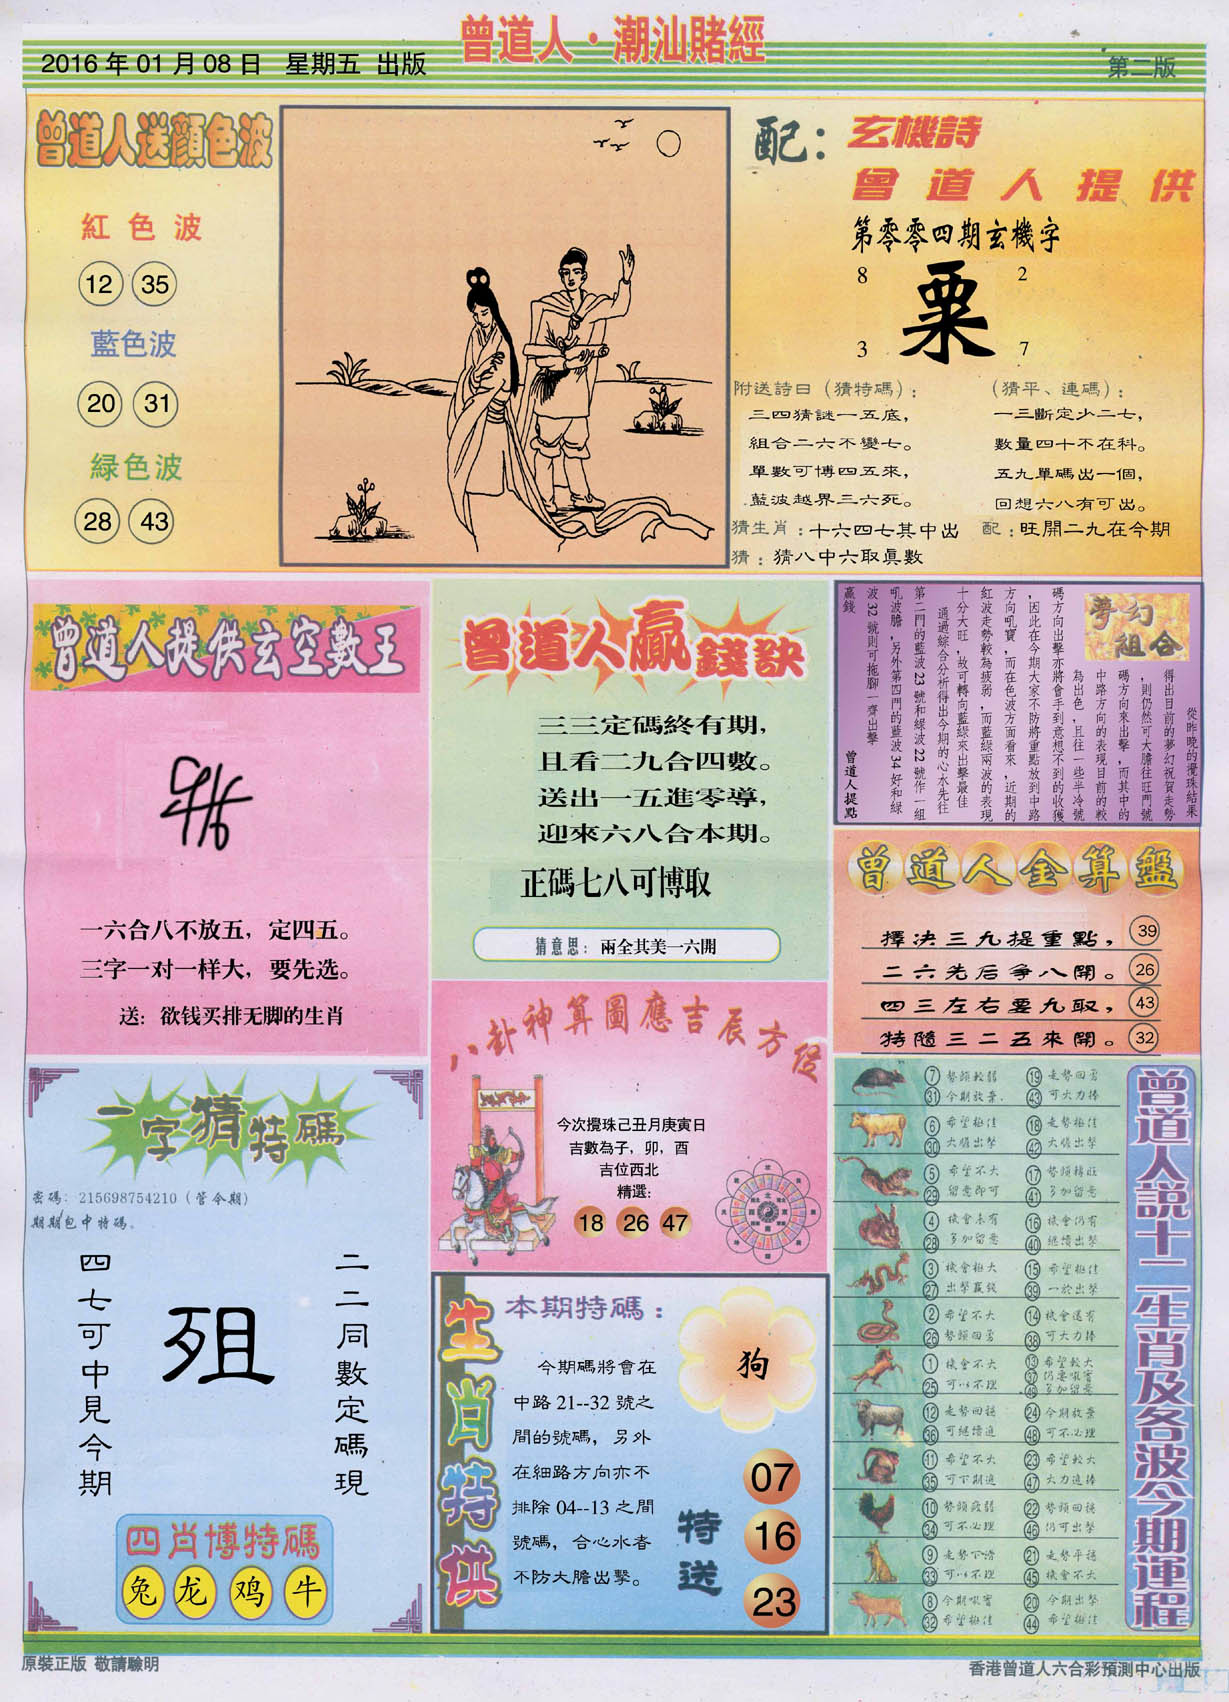 曾道人·潮汕賭經
2016年01月08日 星期五 出版
第二版
曾道人送顏色波
紅色波
12 35
藍色波
20 31
緑色波
28 43
配：
玄機詩
曾道人提供
第零零四期玄機字
8 2
粟
3 7
附送詩曰（猜特碼）：
三四猜謎一五底，
組合二六不變七。
單數可博四五來，
藍波越界三六死。
猜生肖：十六四七其中出
猜：猜八中六取眞數
（猜平、連碼）：
一三斷定少二七，
數量四十不在科。
五九單碼出一個，
回想六八有可出。
配：旺開二九在今期
曾道人提供玄空數王
一六合八不放五，定四五。
三字一对一样大，要先选。
送：欲钱买排无脚的生肖
曾道人贏錢訣
三三定碼終有期，
且看二九合四數。
送出一五進零導，
迎來六八合本期。
正碼七八可博取
猜意思：兩全其美一六開
夢幻組合
從昨晚的攪珠結果
得出目前的夢幻祝賀走勢
，則仍然可大膽往旺門號
碼方向來出擊，而其中的
中路方向的表現目前的較
為出色，且往一些半冷號
碼方向出擊亦將會手到意想不到的收獲
，因此在今期大家不防將重點放到中路
方向吼寶，而在色波方面看來，近期的
紅波走勢較為疲弱，而藍綠兩波的表現
十分大旺，故可轉向藍綠來出擊最佳
通過綜合分析得出今期的心水先往
第二門的藍波23號和綠波22號作一組
吼波膽，另外第四門的藍波34好和綠
波32號則可拖腳一齊出擊
贏錢
曾道人提點
曾道人金算盤
擇決三九提重點， 39
二六先后爭八開。 26
四三左右要九取， 43
特隨三二五來開。 32
八卦神算圖應吉辰方位
今次攪珠己丑月庚寅日
吉數為子，卯，酉
吉位西北
精選：
18 26 47
一字猜特碼
密碼：215698754210（管今期）
期期包中特碼。
二二同數定碼現
殂
四七可中見今期
四肖博特碼
兔 龙 鸡 牛
生肖特供
本期特碼：
今期碼將會在
中路21--32號之
間的號碼，另外
在細路方向亦不
排除04--13之間
號碼，合心水者
不防大膽出擊。
狗
特送
07
16
23
曾道人説十二生肖及各波今期運程
7 勢頭較弱 19 走勢回勇
31 今期放棄 43 可大力捧
6 希望極佳 18 走勢極佳
30 大膽出擊 42 大膽出擊
5 希望不大 17 勢頭轉旺
29 留意即可 41 多加留意
4 機會未有 16 機會仍有
28 多加留意 40 繼續出擊
3 機會極大 15 希望極佳
27 出擊贏錢 39 一於出擊
2 希望不大 14 機會還有
26 勢頭回勇 38 可大力捧
1 機會不大 13 希望較大
37 仍要吼實
25 可以不理 49 多加留意
12 走勢回穩 24 今期放棄
36 可繼續追 48 可不必理
11 希望不大 23 希望較大
35 可下期追 47 大力追捧
10 勢頭疲弱 22 勢頭回穩
34 可不必理 46 仍可出擊
9 走勢下滑 21 走勢平穩
33 可以不理 45 機會不大
8 今期吼實 20 今期出擊
32 希望極佳 44 希望極佳
原裝正版 敬請驗明
香港曾道人六合彩預測中心出版